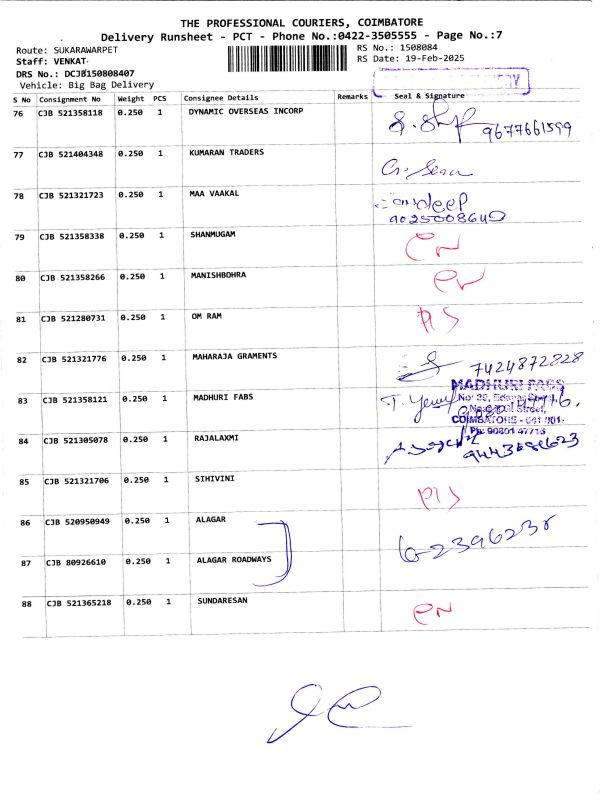 THE PROFESSIONAL COURIERS, COIMBATORE
Delivery Runsheet - PCT - Phone No.:0422-3505555 - Page No.:7
Route: SUKARAWARPET
RS No.: 1508084
Staff: VENKAT
RS Date: 19-Feb-2025
DRS No.: DCJB150808407
Vehicle: Big Bag Delivery
S No Consignment No Weight PCS Consignee Details Remarks Seal & Signature
76 CJB 521358118 0.250 1 DYNAMIC OVERSEAS INCORP
9677661599
77 CJB 521404348 0.250 1 KUMARAN TRADERS
78 CJB 521321723 0.250 1 MAA VAAKAL
9025008640
79 CJB 521358338 0.250 1 SHANMUGAM
80 CJB 521358266 0.250 1 MANISHBOHRA
81 CJB 521280731 0.250 1 OM RAM
82 CJB 521321776 0.250 1 MAHARAJA GRAMENTS
7424872228
83 CJB 521358121 0.250 1 MADHURI FABS
MADHURI FABS
COIMBATORE - 641 001.
Ph: 90801 47776
84 CJB 521305078 0.250 1 RAJALAXMI
85 CJB 521321706 0.250 1 SIHIVINI
86 CJB 520950949 0.250 1 ALAGAR
87 CJB 80926610 0.250 1 ALAGAR ROADWAYS
88 CJB 521365218 0.250 1 SUNDARESAN